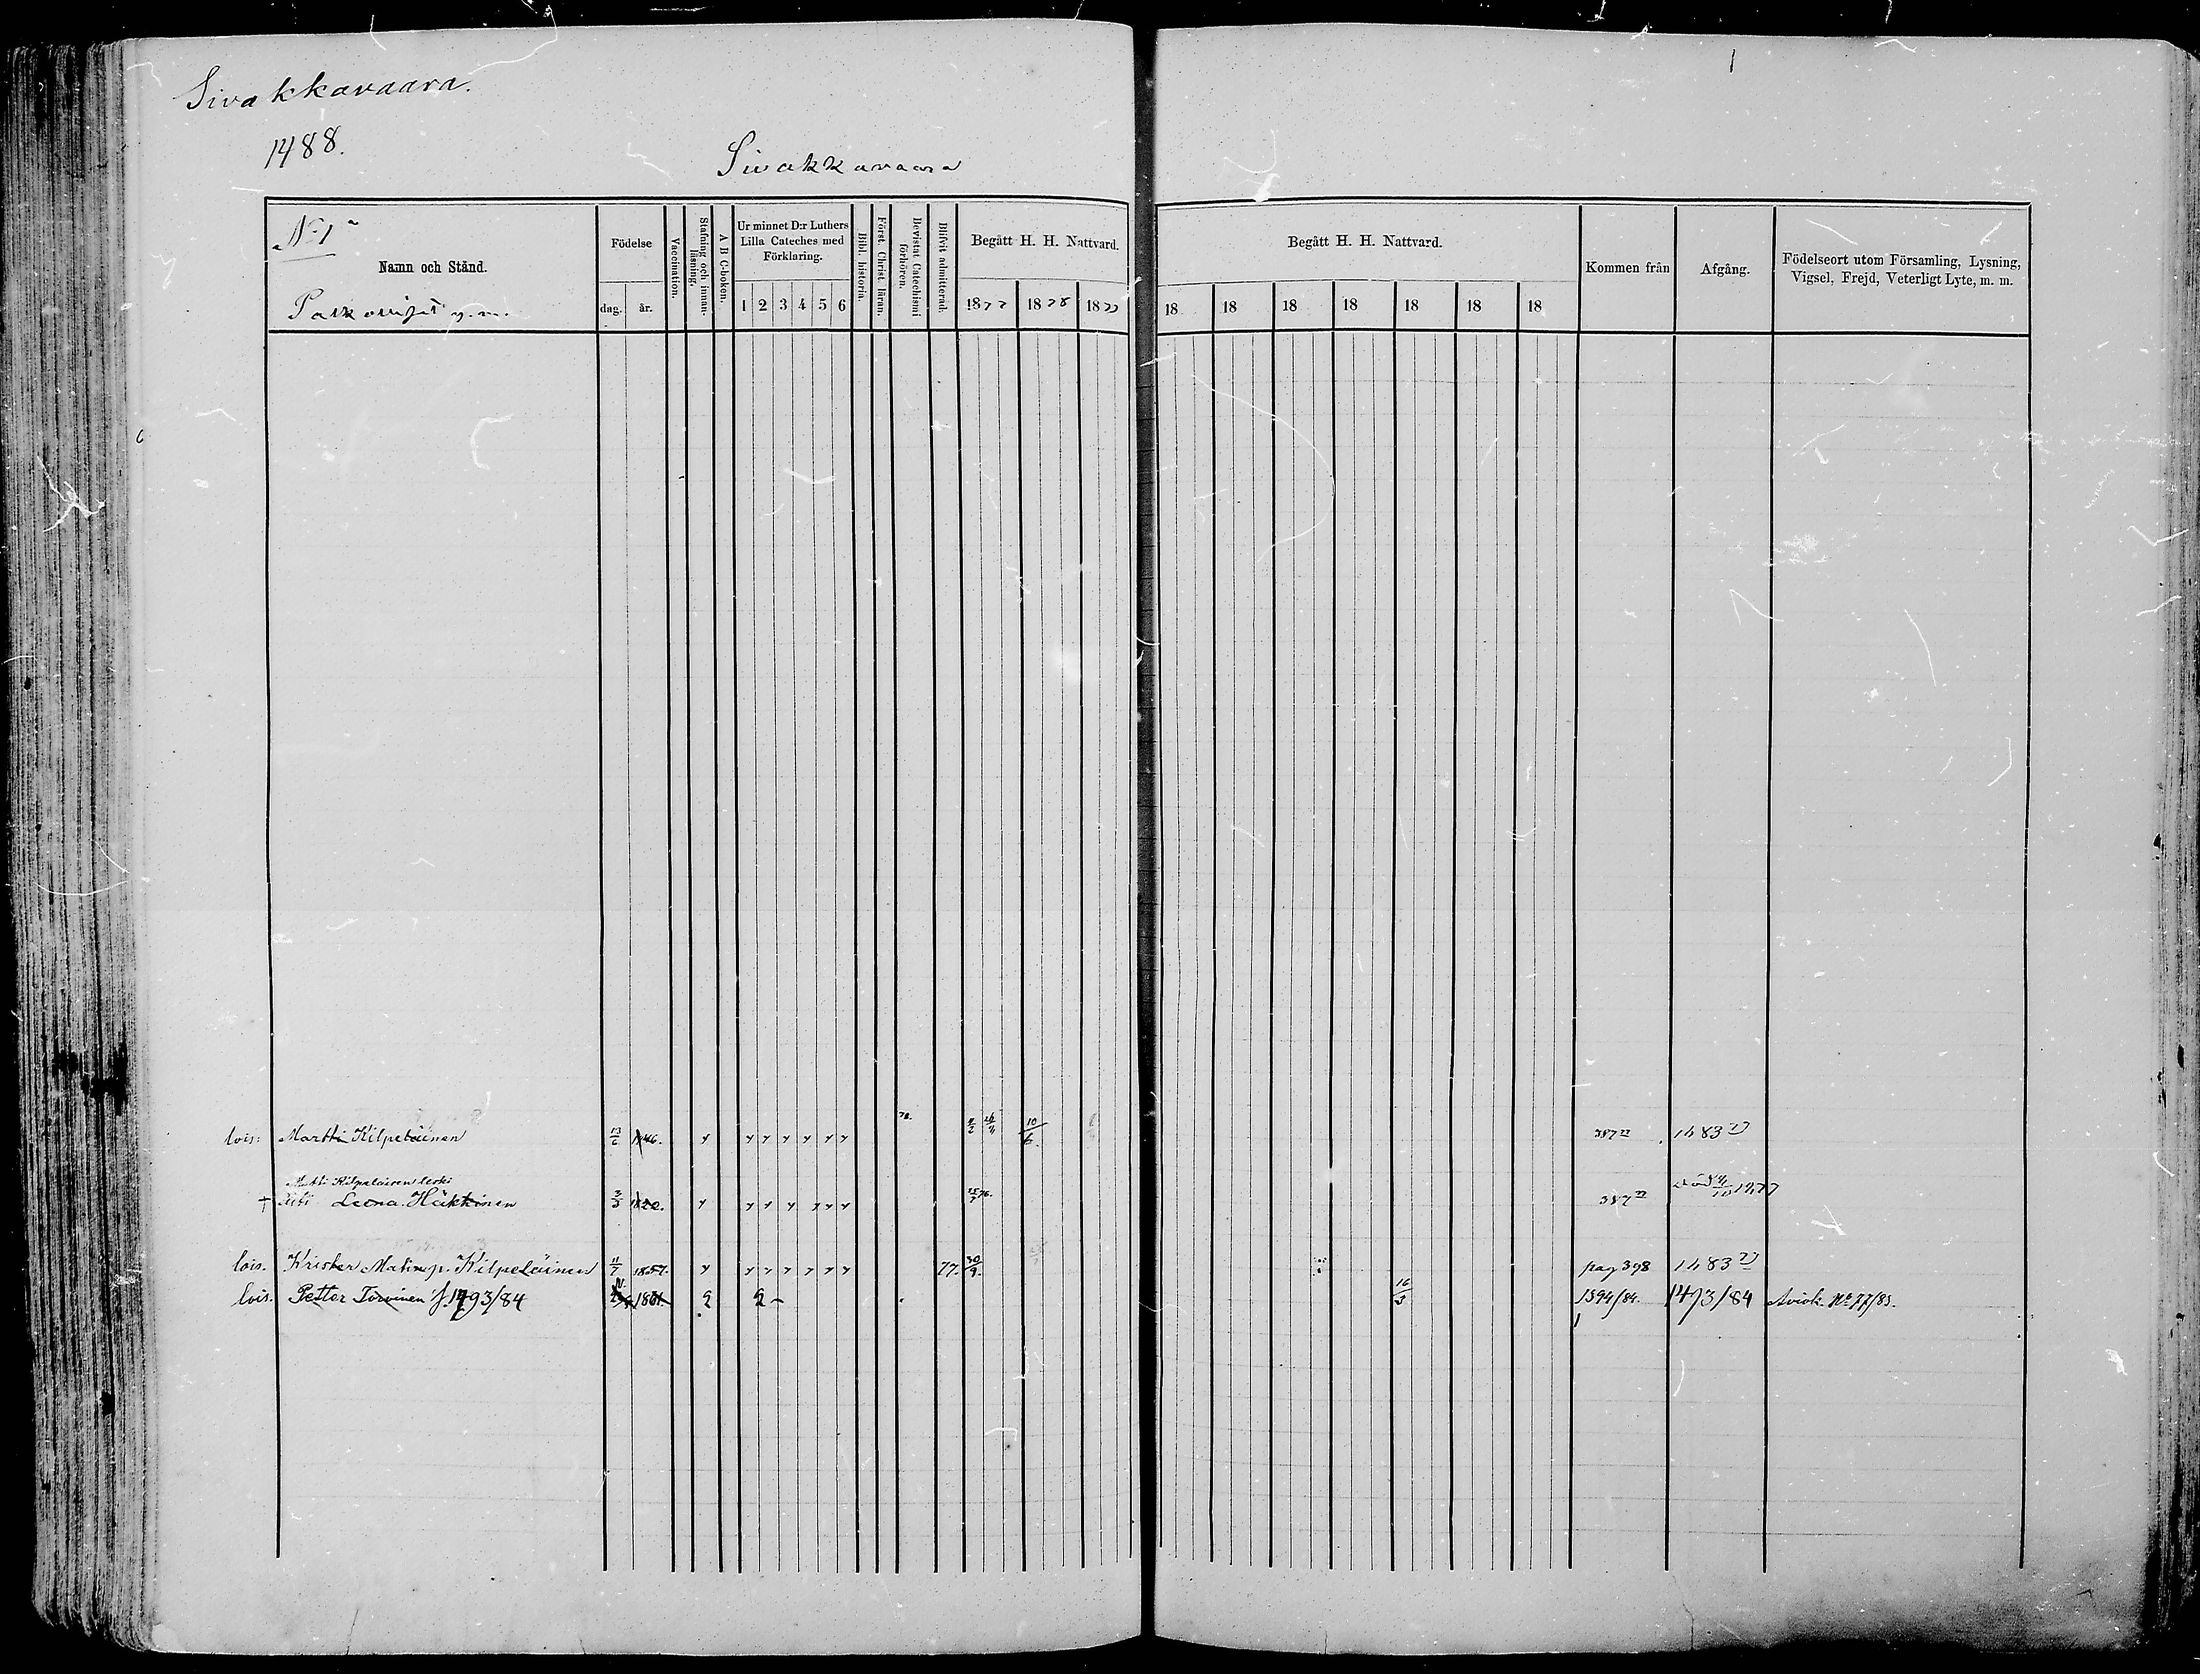 Sivakkavaara.
1488.
Sivakkavaara
No 1
Namn och Stånd.
Födelse
dag. år.
Vaccination.
Stafning och innanläsning.
A B C-boken.
Ur minnet D:r Luthers Lilla Cateches med Förklaring.
1 2 3 4 5 6
Bibl. historia.
Först. Christ. läran.
Bevistat Catechismi förhören.
Blifvit admitterad.
Begått H. H. Nattvard.
1877 1878 18
Begått H. H. Nattvard.
18 18 18 18 18 18 18
Kommen från
Afgång.
Födelseort utom Församling, Lysning, Vigsel, Frejd, Veterligt Lyte, m. m.
lois: Martti Kilpeläinen 13/6 1846. 78. 10/6. 387 77 1483
Matti Kilpeläisen leski
† äiti Leena Häkkinen 3/3 1820. 387 77
lois. Krister Matinp. Kilpeläinen 11/7 1857. 77. 30/9. pag 398 1483
lois. Petter Torvinen 1493/84 1861. 16/3 1394/84. 1473/84 Aviok. No 77/83.